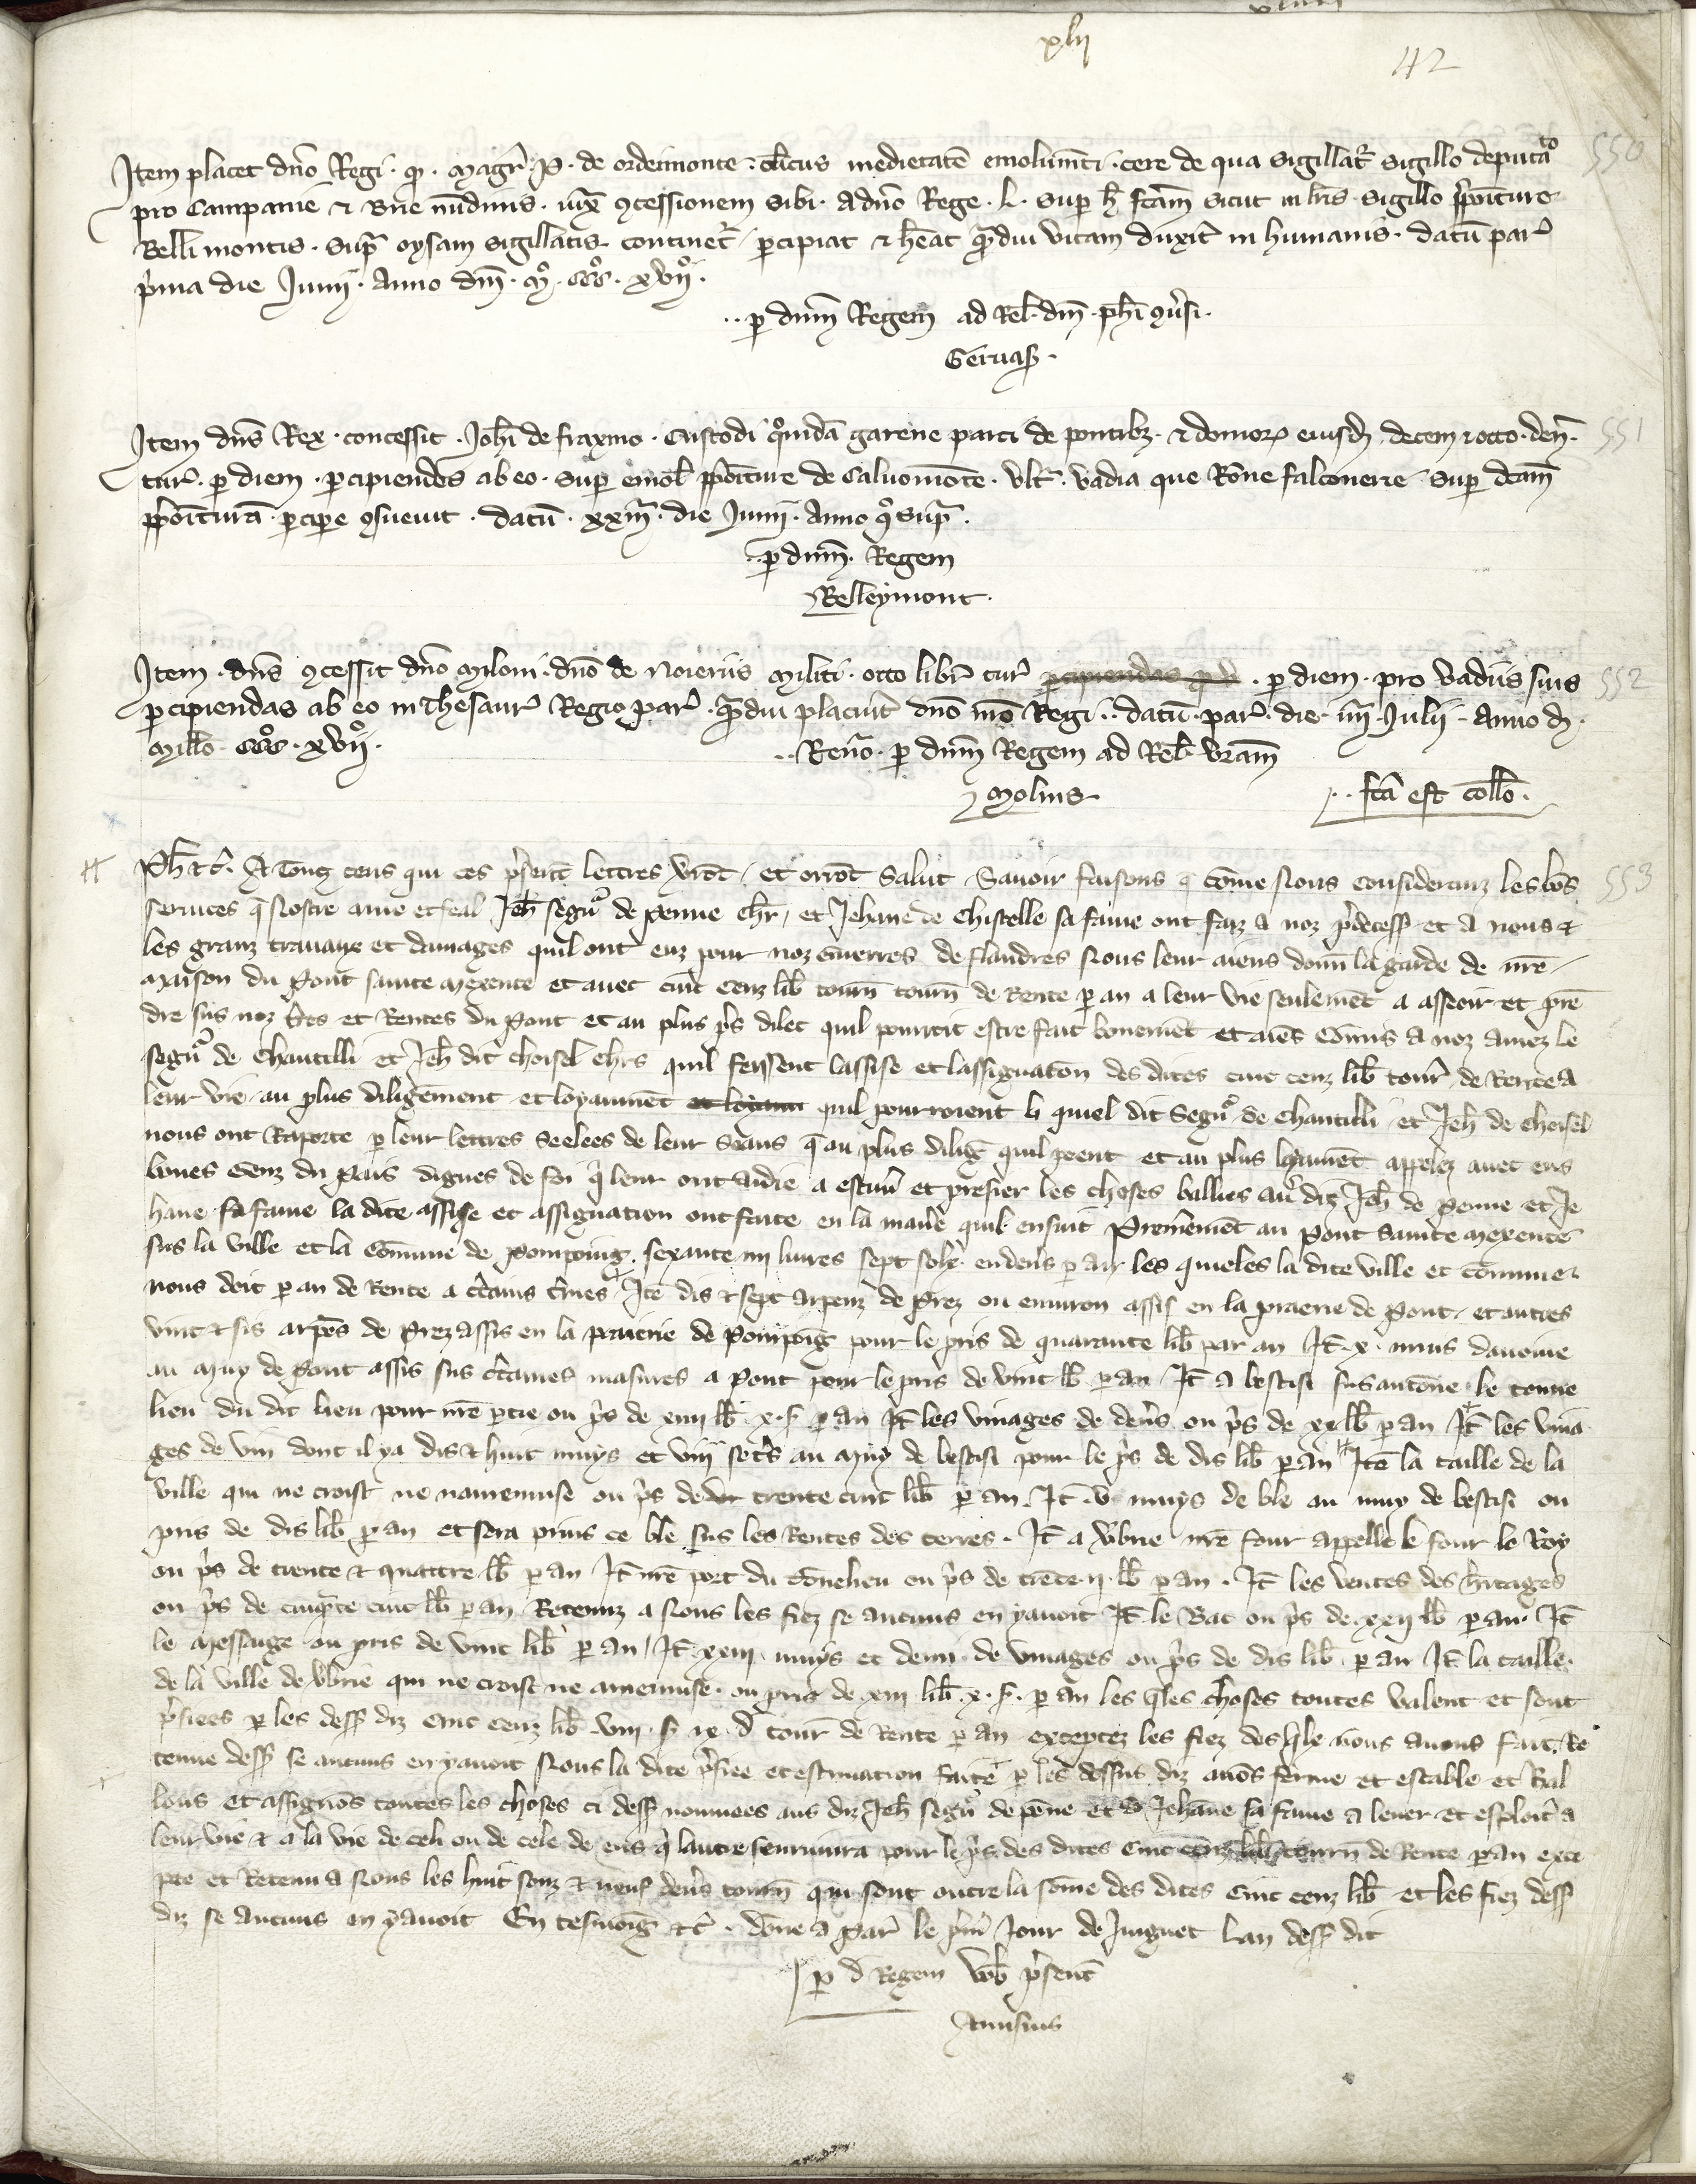 xlii
42
Item placet dño Regi · qͥ · magr̃ · P · de ordeimonte · cl̃icus medietatẽ emolumẽti · cere de qua sigillat̃ sigillo deputato 550
pro Campanie ⁊ Brie nũdinis · iux̃ ꝯcessionem sibi · a dño Rege · L · sup h̃ fcãm sicut in lr̃is sigillo p̃poĩture
Belli montis · sup̃ oysam sigillatis continet̃ p̱cipiat ⁊ hẽat q̃mdiu vitam duxit̃ in humanis · datũ par̃
p̃ma die Junii · Anno dm̃ · mͦ · cccͦ · xviiͦ ·
·· p̱ dnm̃ Regem ad Rel̃ · dm̃ · ph̃i ꝯũsi ·
Geruas̃ ·
Item dñs Rex · concessit · Joh̃i de fraxino · Custodi q̃mdã garene parci de pontib3 · ⁊ domoꝝ eiusd̃ decem ⁊ octo · deñ · 551
tur̃ · p̱ diem · p̱cipiendos ab eo · sup emol̃ p̃poĩture de Caluomõte · vlt̃ · vadia que Rõne falconerie sup dcãm
p̃poĩturã p̱cipe ꝯsueuit · datũ · xxiiĩ · die Junii · Anno qͦ sup̃ ·
·· p̱ dnm̃ · Regem
Relleymont ·
Item · dñs ꝯcessit dño Miloni · dño de Noieriis militi · octo libr̃ tur̃ p̱cipiendas p̱ d · p̱ diem · pro vadiis suis 552
p̱cipiendas ab eo in Thesaur̃ Regio par̃ · q̃mdiu placuit̃ dño nr̃o Regi ·· datũ · par̃ · die · iiii · Julii · Anno d̃ ·
Mill̃o · cccͦ · xviiͦ · ·· Reñ · p̱ dnm̃ Regem ad Rel̃ vr̃am
Molins
·· fc̃a est coll̃o ·
Ph̃ ⁊c̃ · A touz ceus qui ces p̃sentes lettres v̾rõt et orrõt Salut Sauoir faisons q̃ cõme Nous consideranz les bõs 553
seruices q̃ Nostre ame et feal Jeh̃ segñr de Penne chr̃ / et Jehane de Chistelle sa fame ont faiz a noz p̃decess̃ et a nous ⁊
les granz trauaux et damages quil ont euz pour noz guerres de flandres Nous leur aiens donñ la garde de nr̃e
maison du Pont sainte Mexence et auec cinc cenz lib̃ tourñ tourñ de Rente p̱ an a leur vie seulemẽt a asseoir et prẽ
dre sus noz t̾res et Rentes du Pont et au plus p̃s dilec quil pourroit estre fait bonemẽt et aiẽs cõmis a noz amez le
segñr de Chantilli et Jeh̃ dit choisel chr̃s quil feissent lassise et lassignatiõn des dites cinc cenz lib̃ tour̃ de Rente a
leur vie au plus diligẽment et loyaumẽt et loyaum quil pourroient li quiel dit Segñr de Chantilli et Jeh̃ de choisel
nous ont Raporte p̱ leur lettres seelees de leur seaus q̃ au plus dilig̃ quil poent et au plus loyaumẽt appelez auec eus
bones genz du Pais dignes de foi q̃ leur ont aidie a estim̃ et presier les choses ballies aũ diz Jeh̃ de Penne et Je
hane sa fame la dite assise et assignation ont faite en la maniẽ quil ensuit Premiẽment au Pont sainte Mexence
sus la ville et la cõmune de Pompoing sexante iiii liures sept solz endeñs p̱ an les quieles la dite ville et cõmune
nous doit p̱ an de Rente a c̃tains t̾mes Itẽ dis ⁊ sept arpenz de Prez ou enuiron assis en la praerie de Pont et autres
vint ⁊ sis arpẽs de Prez assis en la praierie de Pompoĩg pour le pris de quarante lib̃ par an It̃ · x · muis dauoine
au Muy de Pont assis sus c̃taines masures a Pont pour le pris de vint lb̃ p̱ an It̃ a bestisi sus autõne le tonne
lieu du dit lieu pour nr̃e p̱tie ou p̃s de xiiii lb̃ · x · s̃ p̱ an It̃ les vinages de deñs ou p̃s de xx lb̃ p̱ an It̃ les vina
ges de vin dont il ya dis ⁊ huit muys et viii set̾s au Muy de bestisi pour le p̃s de dis lib̃ p̱ an Itẽ la taille de la
ville qui ne croist ne namenuise ou p̃s de trente cinc lib̃ p̱ an · It̃ · v · muys de ble au muy de bestisi ou
pris de dis lib̃ p̱ an et sera prins ce ble sus les Rentes des terres · It̃ a v̾brie nr̃e four appelle le four le Roy
ou p̃s de trente ⁊ quattre lb̃ p̱ an It̃ nr̃e port du tõnelieu ou p̃s de trẽte · ii · lb̃ p̱ an · It̃ les ventes des h̾itages
ou p̃s de cinq̃te cinc lb̃ p̱ an Retenuz a Nous les fiez se aucuns en yauoit It̃ le Bac ou p̃s de xxii lb̃ p̱ an · It̃
le Message ou pris de vint lib̃ p̱ an / It̃ xxiii · muys et demi de vinages ou p̃s de dis lib̃ p̱ an It̃ la taille
de la ville de v̾brie qui ne croist ne amenuise · ou pris de xiii lib̃ · x · s̃ · p̱ an les q̃les choses toutes valent et sont
p̃siees p̱ les dess̃ diz cinc cenz lib̃ · viii · s̃ · ix · d̃ tour̃ de Rente p̱ an exceptez les fiez des q̃lx nous auons fait Re
tenue dess̃ se aucuns en yauoit Nous la dite p̃siee et estimation faite p̱ les dessus diz auõs ferme et estable et Bal
lons et assignõs toutes les choses ci dess̃ nommees aus diz Jeh̃ segñr de pẽne et Jehãne sa fame a leuer et esploit̃ a
leur vie ⁊ a la vie de celi ou de cele de eus q̃ lautre seuruiura pour le p̃s des dites cinc cenz lib̃ tourñ de Rente p̱ an exce
pte et Retenu a Nous les huit souz ⁊ neuf deñs tourñ qui sont outre la sõme des dites cinc cenz lib̃ et les fiez dess̃
diz se aucuns en yauoit En tesmoig̃ ⁊c̃ · dõne a Par̃ le p̃m̃ Jour de Juignet Lan dess̃ dit
p̱ d̃ Regem vob̃ p̃sent̃